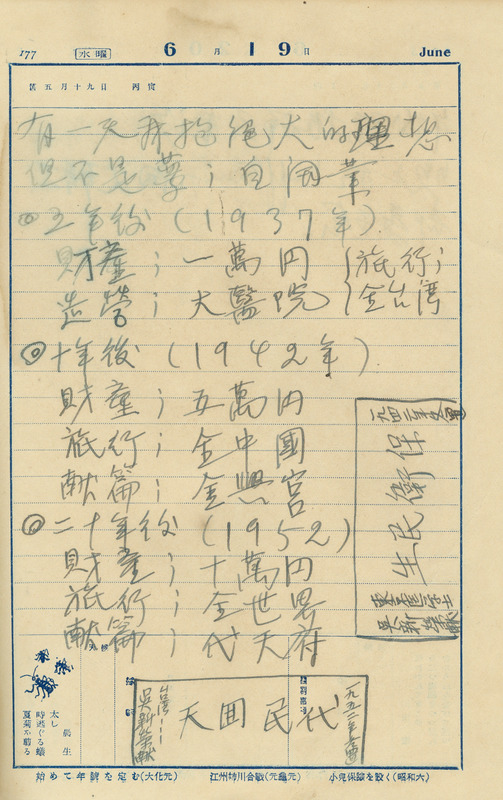 177 水曜 6月19日 June
舊五月十九日 丙寅
有一天我抱絕大的理想
但不是夢；自開業
◎五年後(1937年)
財產；一萬円
造營；大醫院
旅行；
全台灣
◎十年後(1942年)
財產；五萬円
旅行；全中國
献篇；金興宮
◎二十年後(1952)
財產；十萬円
旅行；全世界
献篇；代天府
一九四二年
保衛民生
吳新榮献
一九五二年
代民囬天
台灣
吳新榮献
太し 眞生
時逃ぐる蟻
夏菊を剪る
始めて年號を定む(大化元)
江州姉川合戰(元龜元)
小兒保險を設く(昭和六)